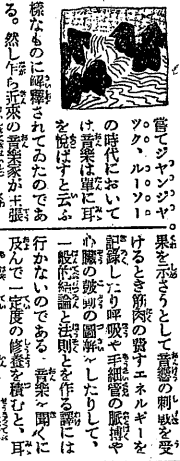 嘗てジャンジャ
ック・ルーソー
の時代において
は、音樂は單に耳
を悦ばすと云ふ
樣なものに解釋されてゐたのであ
る。然し乍ら近來の音樂家が主張
果を示さうとして音響の刺戟を受
けるとき筋肉の費すエネルギーを
記録したり呼吸や手細管の脈搏や
心臟の鼓動の圖解をしたりして、
一般的結論と法則とを作る譯には
行かないのである。音樂を聞くに
及んで一定度の修養を積むと、耳